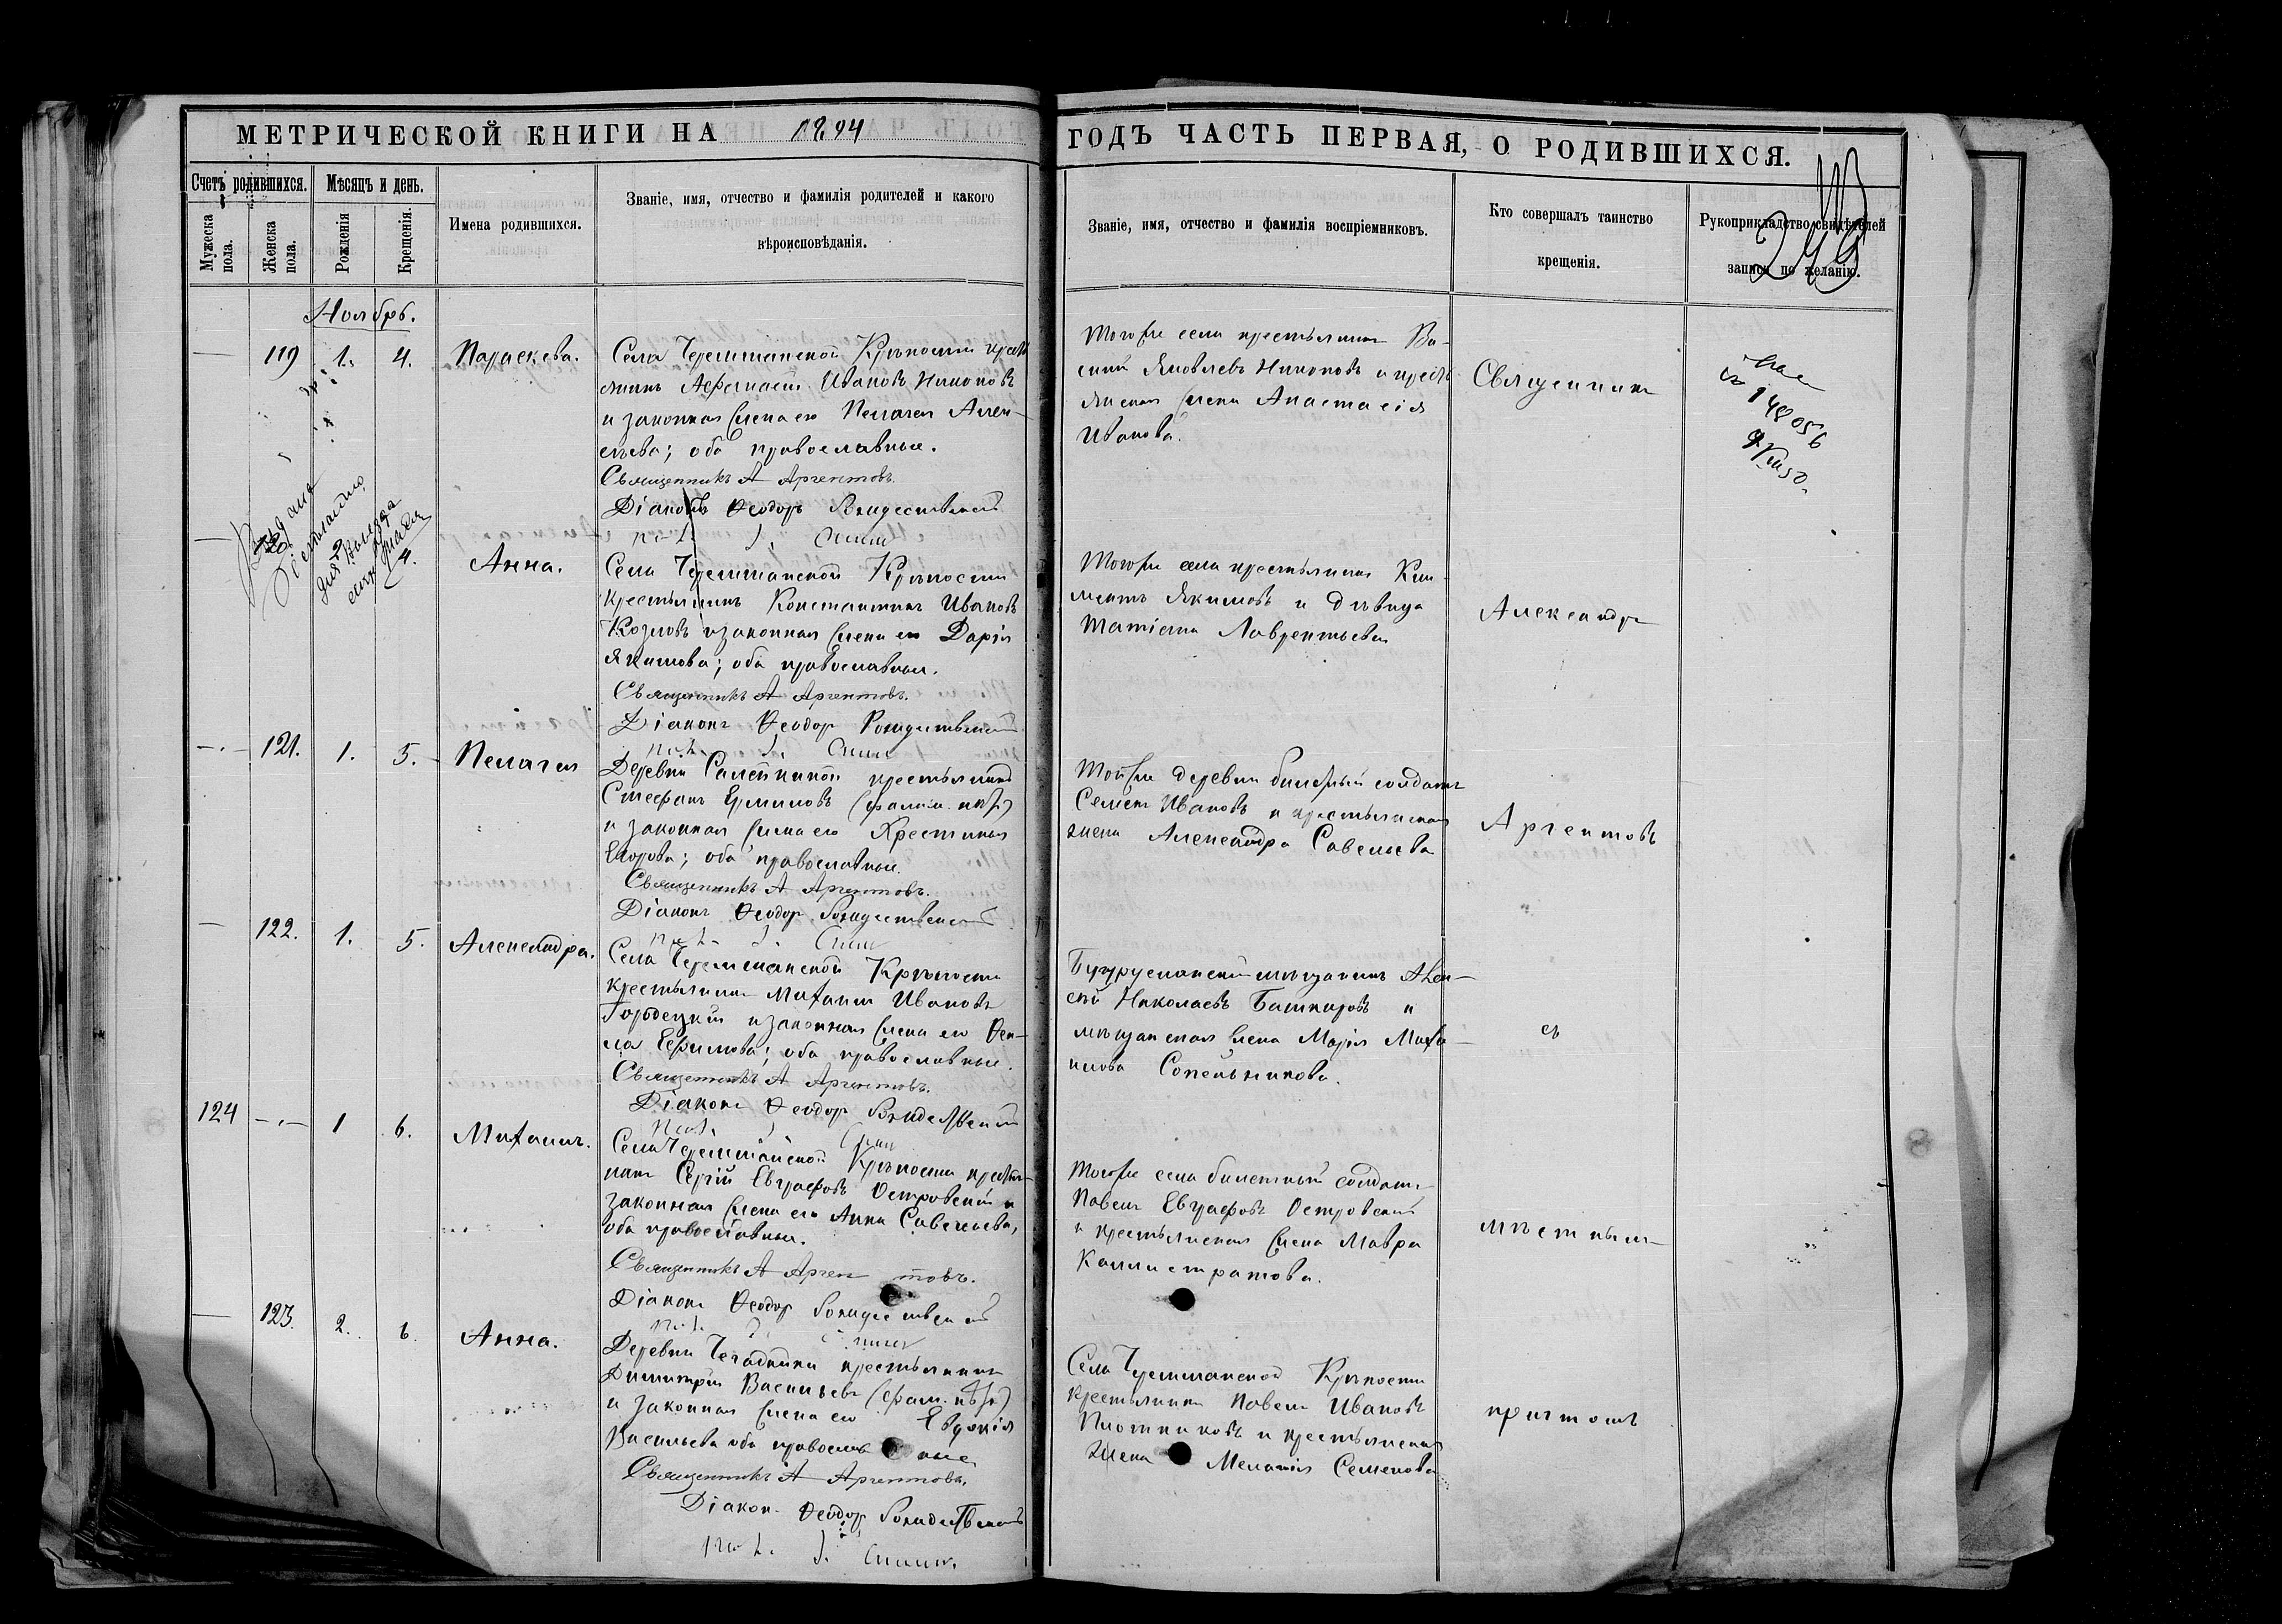 МЕТРИЧЕСКОЙ КНИГИ НА 1894
ГОДЪ ЧАСТЬ ПЕРВАЯ, О РОДИВШИХСЯ.
Счетъ родившихся.
Мѣсяцъ и день.
Мужеска пола.
Женска пола.
Рожденія
Крещенія.
Имена родившихся.
Званіе, имя, отчество и фамилія родителей и какого
вѣроисповѣданія.
Званіе, имя, отчество и фамилія воспріемниковъ.
Кто совершалъ таинство
крещенія.
Рукоприкладство свидѣтелей
записи по желанію.
Ноябрь.
119 1. 4. Параскева.
Села Черемшанской Крѣпости крестья
нинъ Афанасій Ивановъ Никоновъ
и законная жена его Пелагея Алек-
сѣева; оба православные.
Священникъ А Аргентовъ.
Діаконъ Ѳеодоръ Рождественскій
Тогоже села крестьянинъ Ва-
силій Яковлевъ Никоновъ и кресть
янская жена Анастасія
Иванова.
Священникъ
148056
4. Анна.
Села Черемшанской Крѣпости
крестьянинъ Константинъ Ивановъ
Козловъ и законная жена его Дарія
Якимова; оба православные.
Священникъ А Аргентовъ.
Діаконъ Ѳеодоръ Рождественскій
Тогоже села крестьянинъ Кли-
ментъ Якимовъ и дѣвица
Татіана Лаврентьева
Александръ
121. 1. 5. Пелагея
Деревни Салейкиной крестьянинъ
Стефанъ Ермиловъ
и законная жена его Христина
Егорова; оба православные.
Священникъ А Аргентовъ.
Діаконъ Ѳеодоръ Рождественскій
Тойже деревни билетный солдатъ
Семенъ Ивановъ и крестьянская
жена Александра Савельева
Аргентовъ
122. 1. 5. Александра.
Села Черемшанской Крѣпости
крестьянинъ Михаилъ Ивановъ
Городецкій и законная жена его Ѳек-
ла Ефимова; оба православные.
Священникъ А Аргентовъ.
Діаконъ Ѳеодоръ Рождественскій
Бугурусланскій мѣщанинъ Алек-
сѣй Николаевъ Башкировъ и
мѣщанская жена Марія Михаи-
лова Сопельникова.
съ
124 1 6. Михаилъ.
Села Черемшанской Крѣпости крестья-
нинъ Сергій Евграфовъ Островскій и
законная жена его Анна Савельева,
оба православные.
Священникъ А Аргентовъ.
Діаконъ Ѳеодоръ Рождественскій
Тогоже села билетный солдатъ
Павелъ Евграфовъ Островскій
и крестьянская жена Мавра
Каллистратова.
мѣстнымъ
123. 2. 6. Анна.
Деревни крестьянинъ
Димитрій Васильевъ
и законная жена его Евдокія
Васильева оба православные.
Священникъ А Аргентовъ.
Діаконъ Ѳеодоръ Рождественскій
Села Черемшанской Крѣпости
крестьянинъ Павелъ Ивановъ
Плотниковъ и крестьянская
жена Мелания Семенова
причтомъ